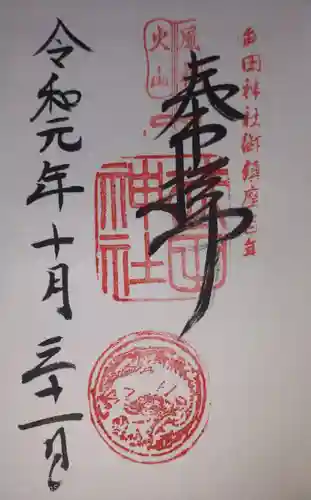 田神社御鎮座年
風
火山
奉拝
神社
令和元年十月三十一日